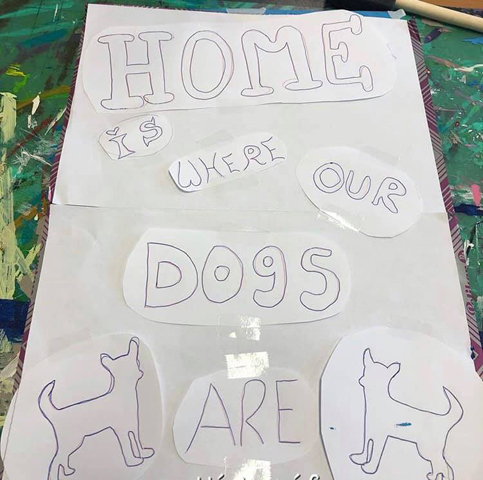 HOME
is
WHERE
OUR
DOgS
ARE